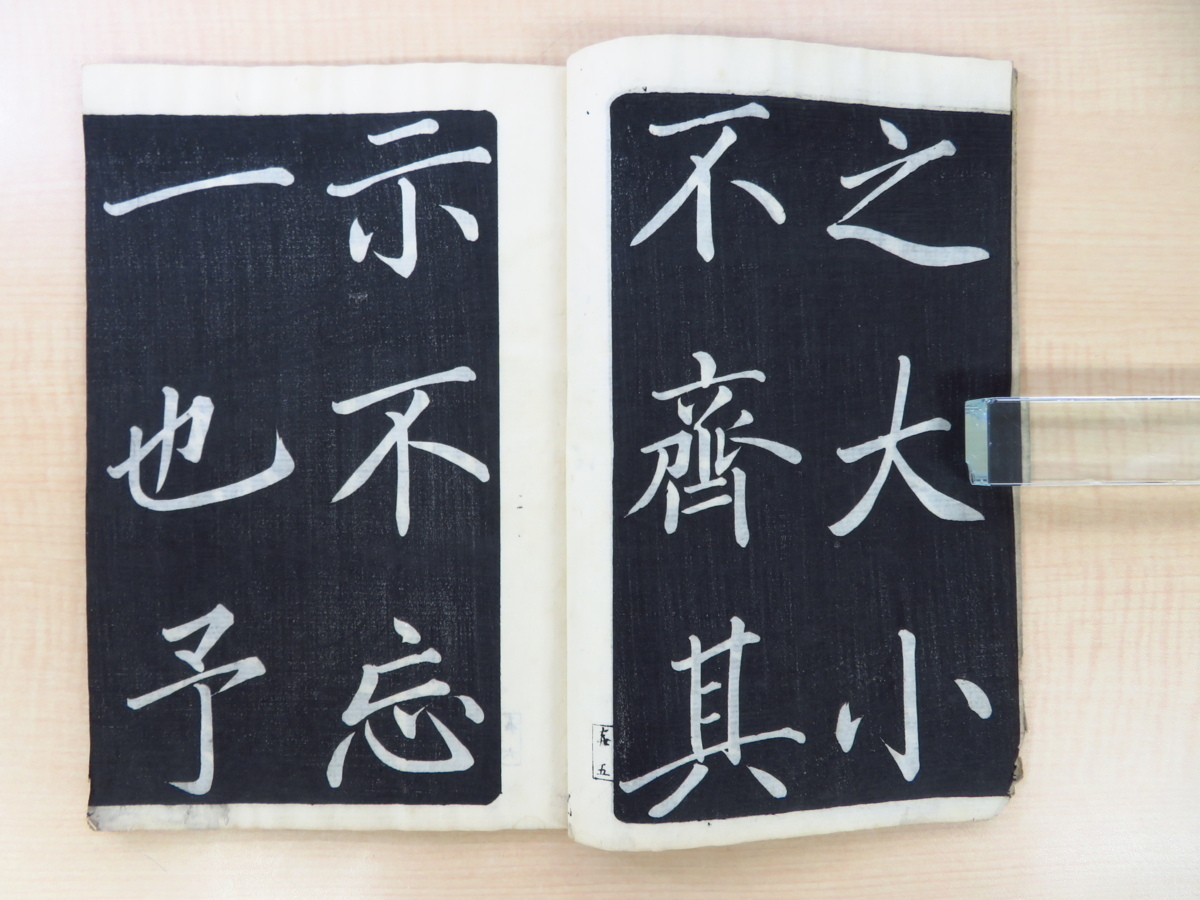 之大小
不齊其
示不忘
一也予
五